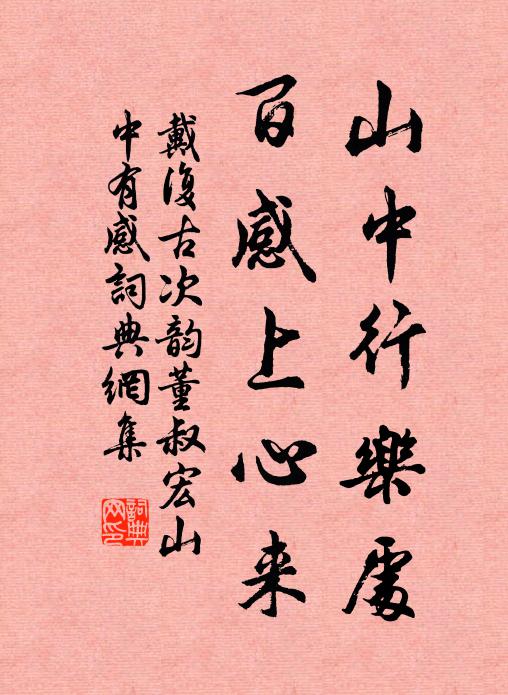 山中行樂處
百感上心来
戴復古次韵董叔宏山
中有感詞典網集
詞典
网印